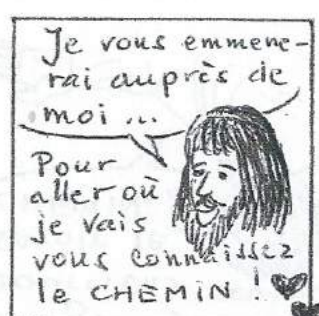 Je vous emmene-
rai auprès de
moi ...
Pour
aller où
je vais
vous connaissez
le CHEMIN !